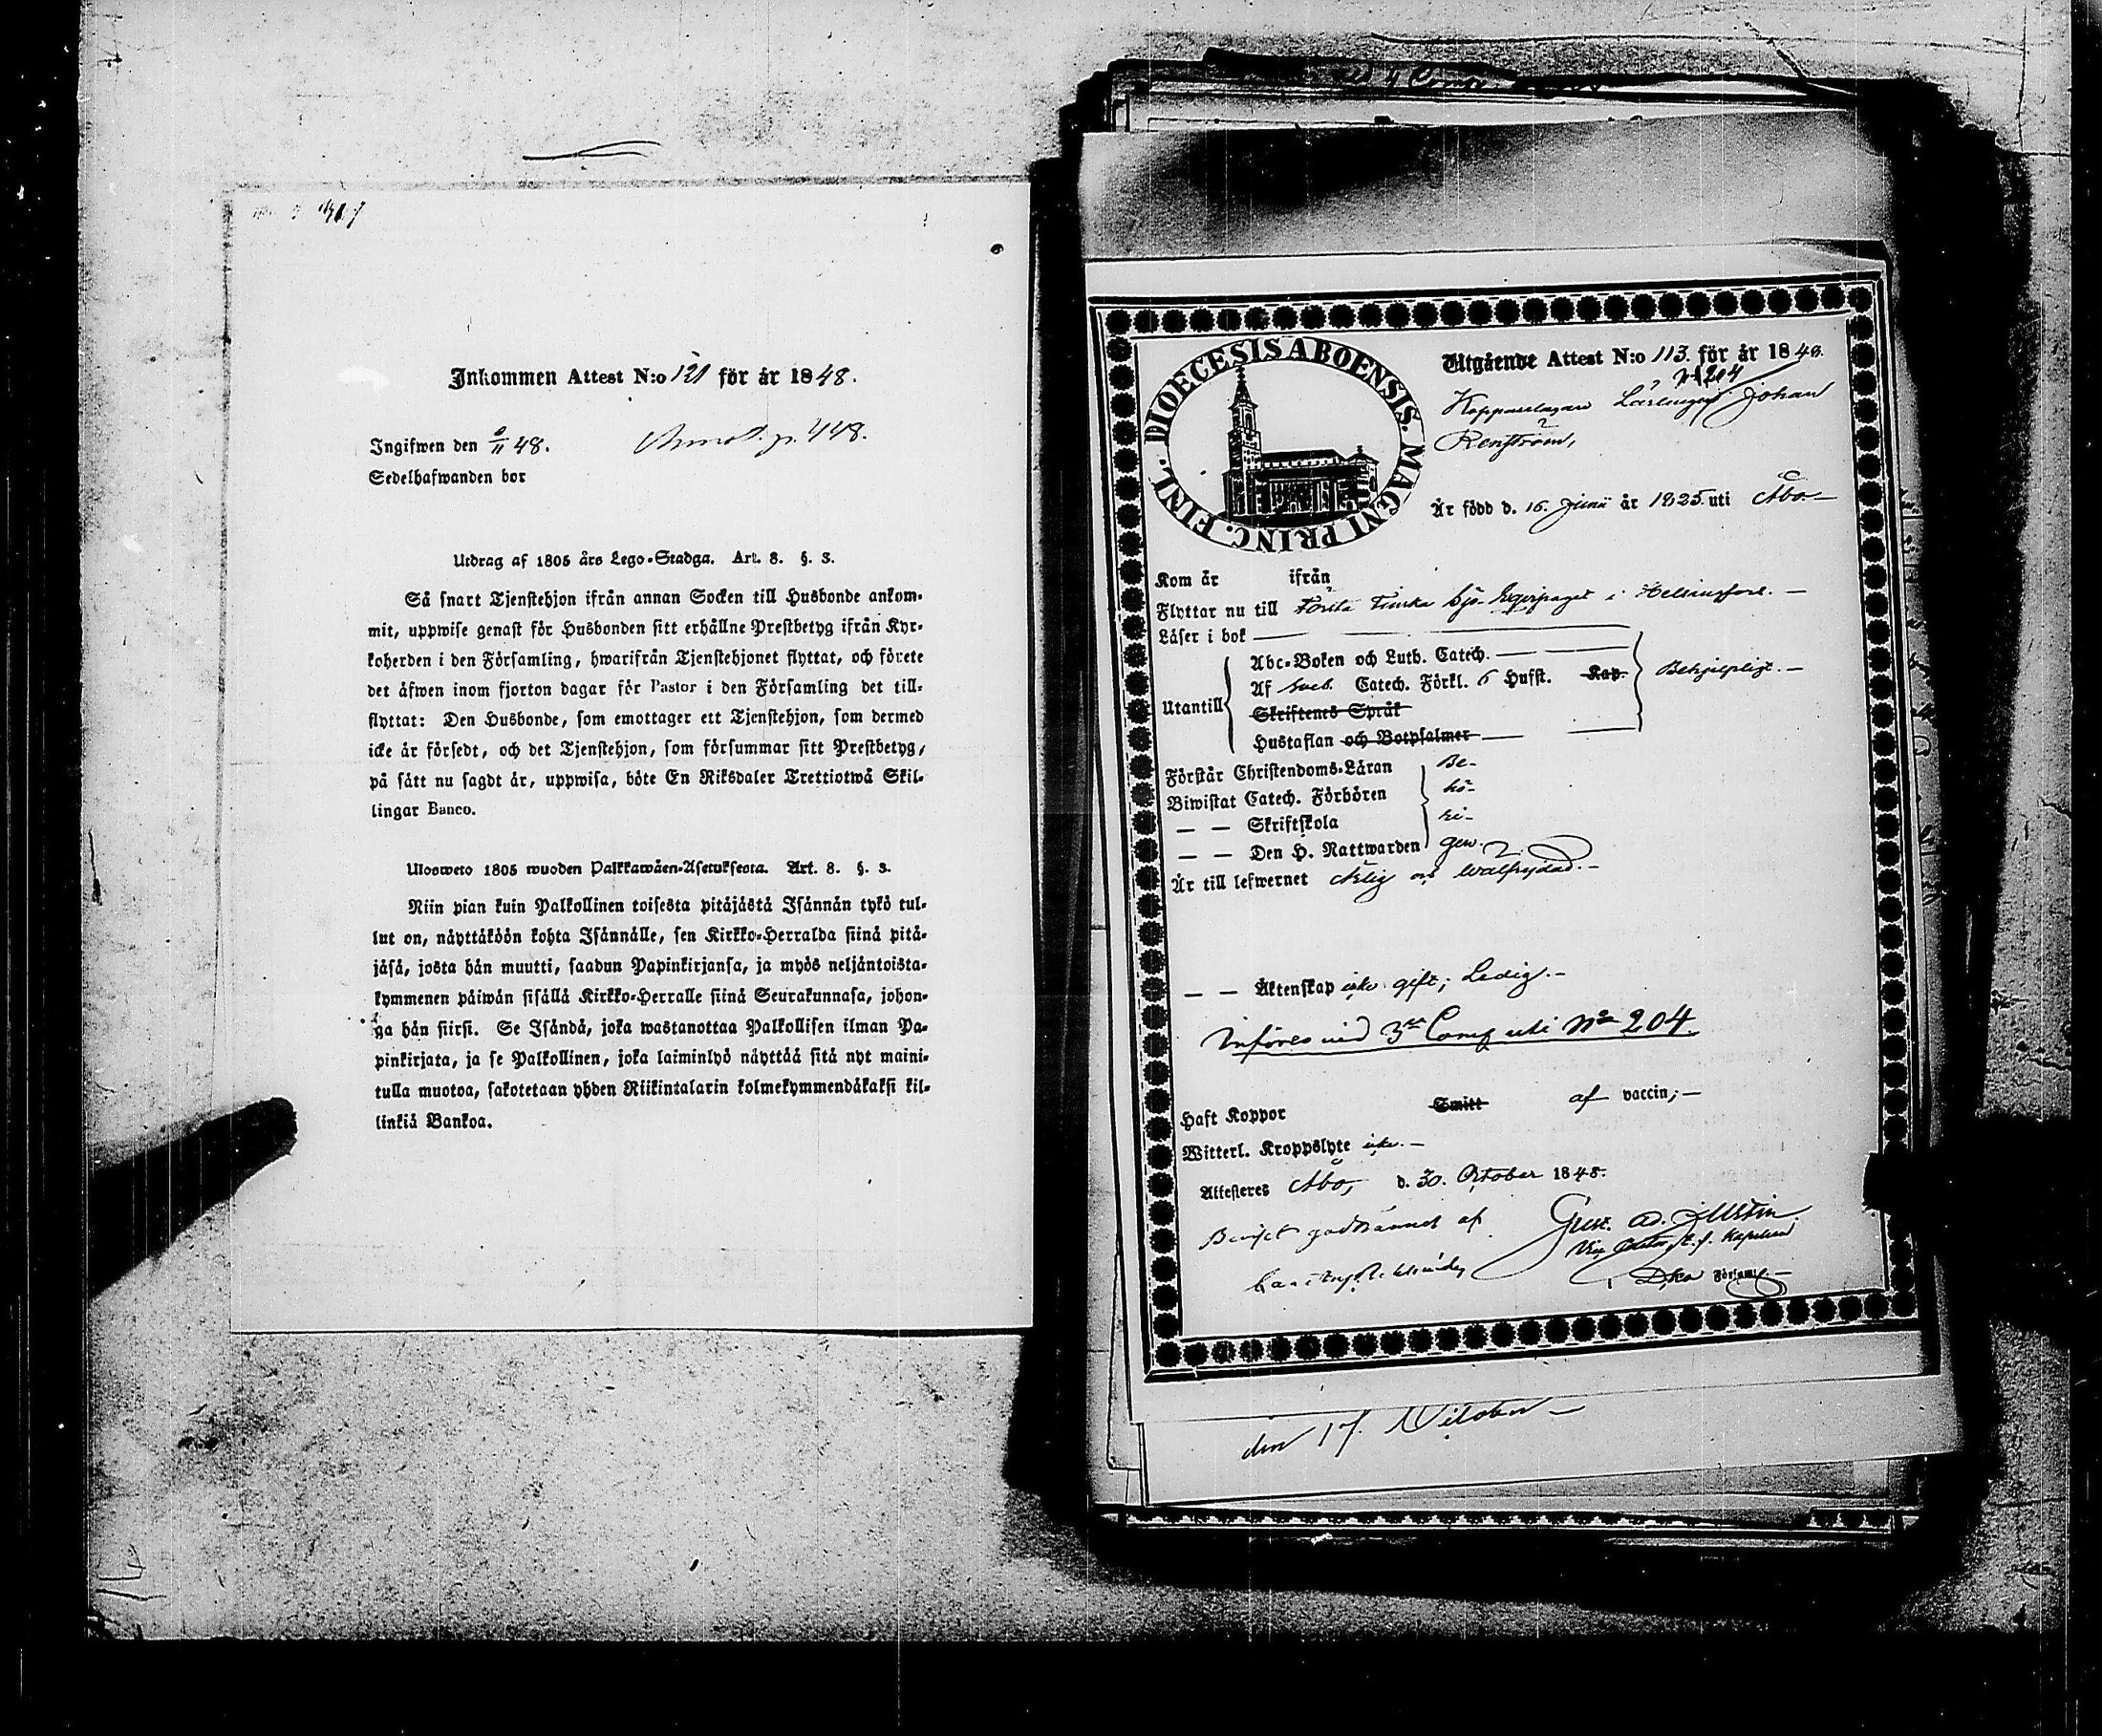 Inkommen Attest N:o 121 för år 1848.
Ingifwen den 9/11 48. Annot. p. 448.
Sedelhafwanden bor
Utdrag af 1805 års Lego-Stadga. Art. 8. §. 3.
Så snart Tjenstehjon ifrån annan Socken till Husbonde ankom-
mit, uppwise genast för Husbonden sitt erhållne Prestbetyg ifrån Kyr-
koherden i den Församling, hwarifrån Tjenstehjonet flyttat, och förete
det äfwen inom fjorton dagar för Pastor i den Församling det till-
flyttat: Den Husbonde, som emottager ett Tjenstehjon, som dermed
icke är försedt, och det Tjenstehjon, som försummar sitt Prestbetyg,
på sätt nu sagdt är, uppwisa, böte En Riksdaler Trettiotwå Skil-
lingar Banco.
Ulosweto 1805 wuoden Palkkawäen-Asetuksesta. Art. 8. §. 3.
Niin pian kuin Palkollinen toisesta pitäjästä Isännän tykö tul-
lut on, näyttäköön kohta Isännälle, sen Kirkko-Herralda siinä pitä-
jäsä, josta hän muutti, saadun Papinkirjansa, ja myös neljäntoista-
kymmenen päiwän sisällä Kirkko-Herralle siinä Seurakunnasa, johon-
ga hän siirsi. Se Isändä, joka wastanottaa Palkollisen ilman Pa-
pinkirjata, ja se Palkollinen, joka laiminlyö näyttää sitä nyt maini-
tulla muotoa, sakotetaan yhden Riikintalarin kolmekymmendäkaksi kil-
linkiä Bankoa.
DIOECESIS ABOENSIS. MAGNI PRINC. FINL.
Utgående Attest N:o 113. för år 1848.
N 204
Kopparslagare Lärlingen Johan
Renström,
Är född d. 16. Junii år 1825. uti Åbo.
Kom år ifrån
Flyttar nu till Första Finska Sjö-Equipaget i Helsingfors.
Läser i bok
Abc-Boken och Luth. Catech.
Utantill Af Sveb. Catech. Förkl. 6 Hufst. Kap. Behjelpligt.
Skriftenes Språk
Hustaflan och Botpsalmer
Förstår Christendoms-Läran Be-
Biwistat Catech. Förhören hö-
— — Skriftskola ri-
— — Den H. Nattwarden gen.
Är till lefwernet ärlig och wälfrejdad.
— — Äktenskap icke gift; Ledig.
Införes vid 3dje Comp uti No 204.
Haft Koppor Smitt af vaccin;
Witterl. Kroppslyte icke.
Attesteres Åbo, d. 30. October 1848.
Beviset godkännes af Gust. Ad.
Församl.
den 17. October